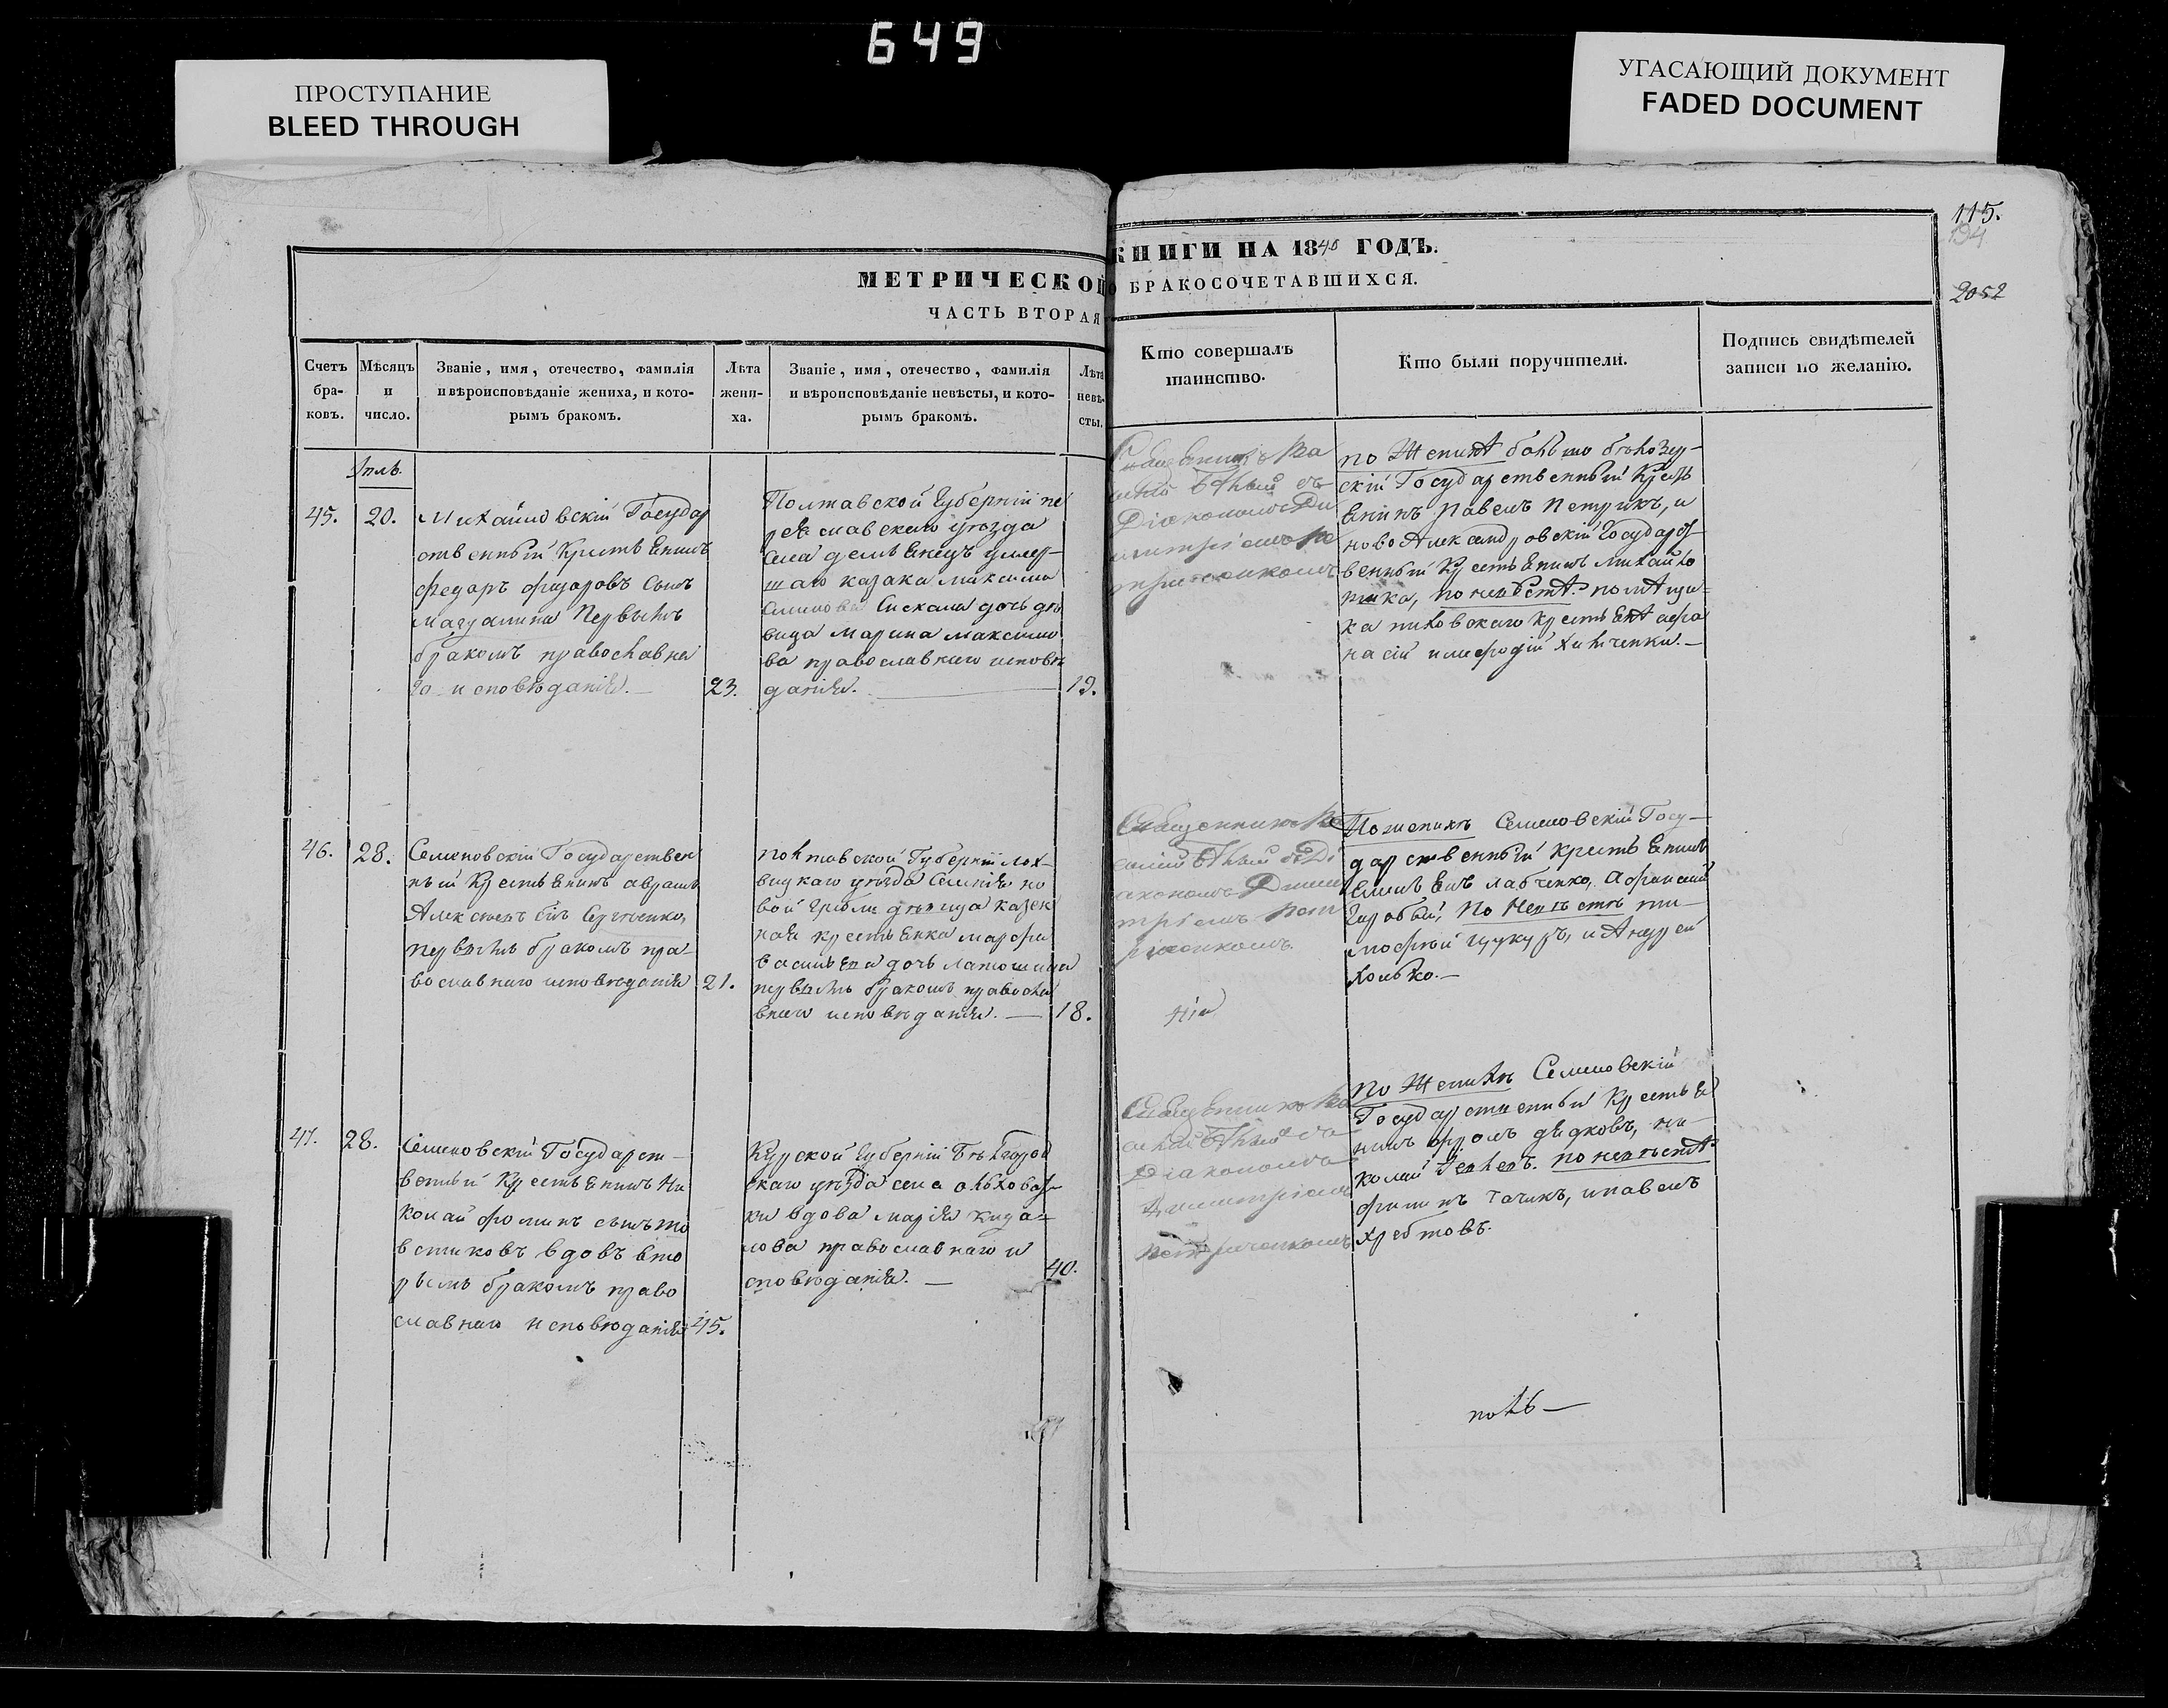 649
ПРОСТУПАНИЕ
BLEED THROUGH
УГАСАЮЩИЙ ДОКУМЕНТ
FADED DOCUMENT
115.
194
2052
МЕТРИЧЕСКОЙ КНИГИ НА 1840 ГОДЪ.
ЧАСТЬ ВТОРАЯ О БРАКОСОЧЕТАВШИХСЯ.
Счетъ бра- ковъ.
Мѣсяцъ и число.
Званіе, имя, отечество, фамилія и вѣроисповѣданіе жениха, и кото- рымъ бракомъ.
Лѣта жени- ха.
Званіе, имя, отечество, фамилія и вѣроисповѣданіе невѣсты, и кото- рымъ бракомъ.
Лѣта невѣ- сты.
Кто совершалъ таинство.
Кто были поручители.
Подпись свидѣтелей записи по желанію.
45.
20.
Михайловскій Государ
ственный Крестьянинъ
федаръ сынъ
Первымъ
бракомъ православна
го исповѣданія.
23.
Полтавской Губерніи пе
реяславскаго уѣзда
села демьянецъ умер-
шаго казака максима
дочь дѣ
вица марина максимо
ва православнаго исповѣ
данія.
19.
Священникъ Ва
силій Бѣлый съ
Діакономъ Ди
митріемъ Пе
по Женихѣ больше бѣлозер-
скій Государственный Кресть
янинъ Павелъ Петрикъ, и
ново Александровскій Государст
венный Крестьянинъ михайло
по невѣстѣ помѣщи-
ка крестьяне афа
насій и мефодій
46.
28.
Семеновскій Государствен
ный Крестьянинъ аврамъ
Алексѣевъ сынъ Сергіенко,
первымъ бракомъ пра-
вославнаго исповѣданія
21.
полтавской Губерніи лох-
вицкаго уѣзда
вой Гребли дѣвица казен
ная крестьянка марфа
васильева дочь
первымъ бракомъ правосла
внаго исповѣданія.
18.
Священникъ Ва
силій Бѣлый съ Ді
акономъ Дими
тріемъ Пет
По женихѣ Семеновскій Госу-
дарственный крестьянинъ
лабченко, Афанасій
По Невѣстѣ ти-
мофѣй цукуръ, и Андрей
47.
28.
Семеновскій Государст-
венный Крестьянинъ Ни
колай фоминъ сынъ то
встиковъ вдовъ вто
рымъ бракомъ право
славнаго исповѣданія
45.
Курской Губерніи Бѣлгород
скаго уѣзда села ольховат
ки вдова марія
лова православнаго и
сповѣданія.
40.
Священникъ Ва
силій Бѣлый съ
Діакономъ
Димитріемъ
по Женихѣ Семеновскій
Государственный Крестья
нинъ фролъ дѣдковъ, ни-
колай по невѣстѣ
филипъ и павелъ
хребтовъ.